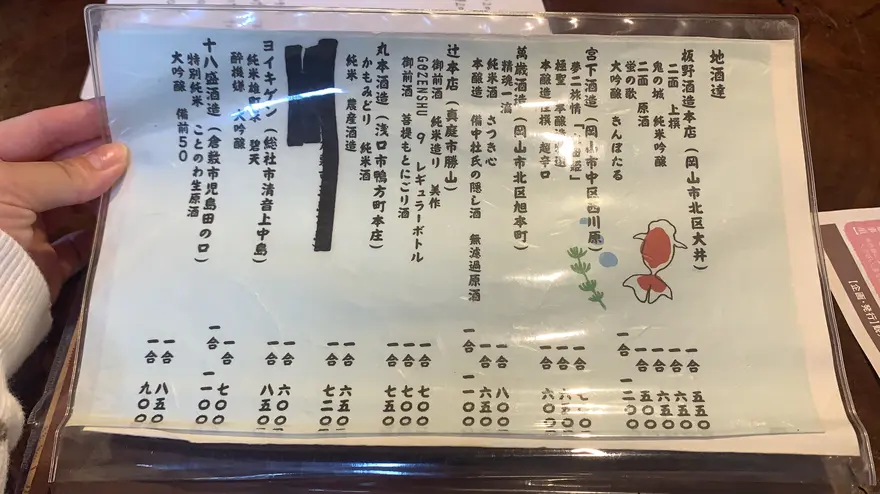 地酒達
板野酒造本店（岡山市北区大井）
二面 上撰 一合 五五〇
鬼の城 純米吟醸 一合 六五〇
二面 原酒 一合 六五〇
蛍の歌 一合 五〇〇
大吟醸 きんぼたる 一合 一二〇〇
宮下酒造（岡山市中区西川原）
夢二旅情 一合
極聖 一合
本醸造 超辛口 一合 六〇〇
萬歳酒造（岡山市北区旭本町）
精魂一滴 一合 八〇〇
純米酒 さつき心 一合 六五〇
本醸造 備中杜氏の隠し酒 無濾過原酒 一合 一一〇〇
辻本店（真庭市勝山）
御前酒 純米造り 美作 一合 七〇〇
GOZENSHU 9 レギュラーボトル 一合 七〇〇
御前酒 菩提もとにごり酒 一合 七〇〇
丸本酒造（浅口市鴨方町本庄）
かもみどり 純米酒 一合 六五〇
純米 農産酒造 一合 七五〇
一合 六五〇
一合 七二〇
ヨイキゲン（総社市清音上中島）
純米雄町米 碧天 一合 六〇〇
酔機嫌 大吟醸 一合 八五〇
十八盛酒造（倉敷市児島田の口）
特別純米 ことのわ生原酒 一合 七〇〇
大吟醸 備前50 一合 一一〇〇
一合 八五〇
一合 九〇〇
【企画・発行】